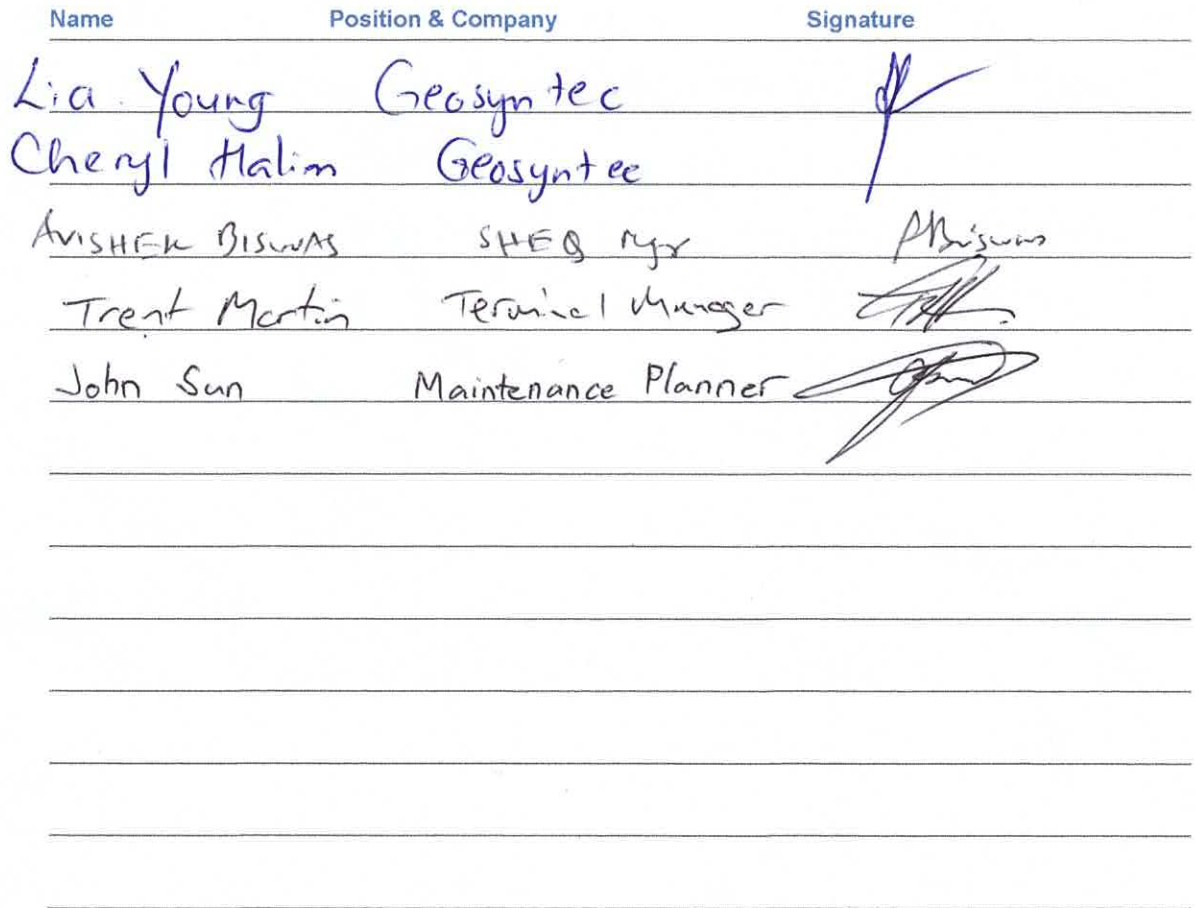 Name Position & Company Signature
Lia Young Geosyntec
Cheryl Halim Geosyntec
AVISHEK BISWAS SHEQ Mgr ABiswas
Trent Martin Terminal Manager
John Sun Maintenance Planner